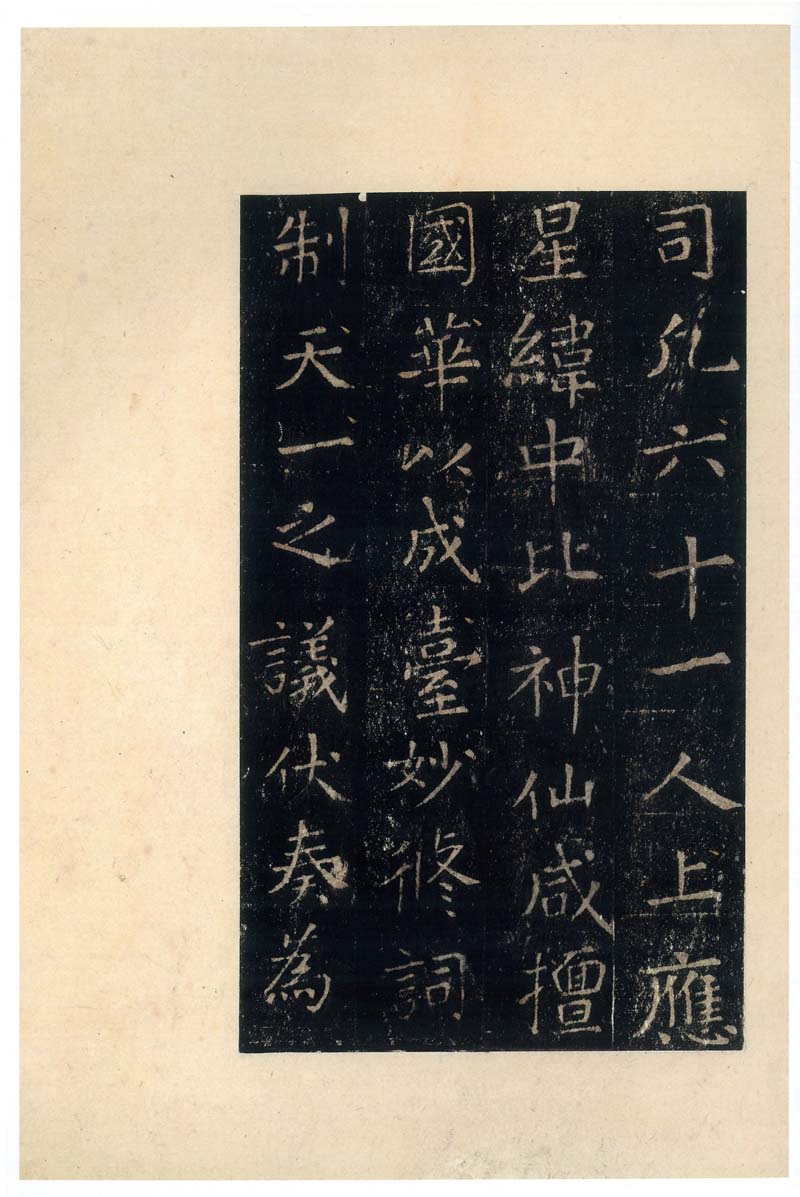 司凡六十一人上應
星緯中比神仙咸擅
國華以成臺妙修詞
制天下之議伏奏為